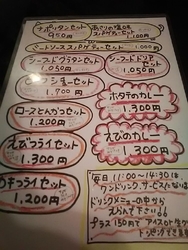 ナポリタンセット
950円
1,100円
ミートソーススパゲティーセット
1,000円
シーフードグラタンセット
1,050円
シーフードドリアセット
1,050円
セット
1,200円
ホタテのカレー
1,300円
ロースとんかつセット
1,200円
えびのカレー
1,300円
えびフライセット
1,300円
カキフライセット
1,200円
毎日(11:00〜14:30)は
ワンドリンクサービスとなります
ドリンクメニューの中から
えらんで下さい!!
プラス150円でアイスorホット